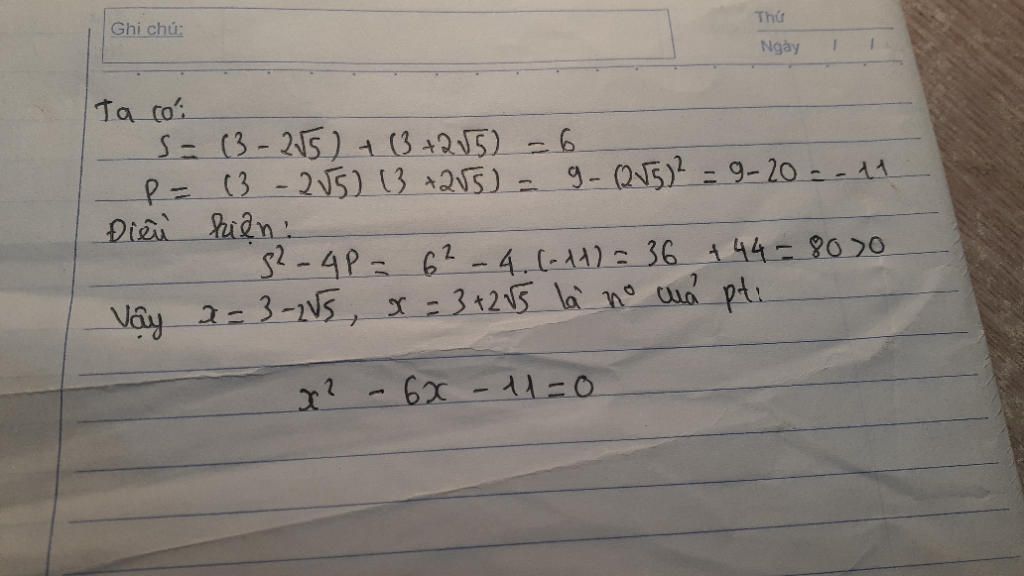 Ghi chú:
Thứ
Ngày / /
Ta có:
S = (3 - 2√5) + (3 + 2√5) = 6
P = (3 - 2√5) (3 + 2√5) = 9 - (2√5)² = 9 - 20 = - 11
Điều kiện:
S² - 4P = 6² - 4. (-11) = 36 + 44 = 80 > 0
Vậy x = 3 - 2√5, x = 3 + 2√5 là nº cuả pt:
x² - 6x - 11 = 0